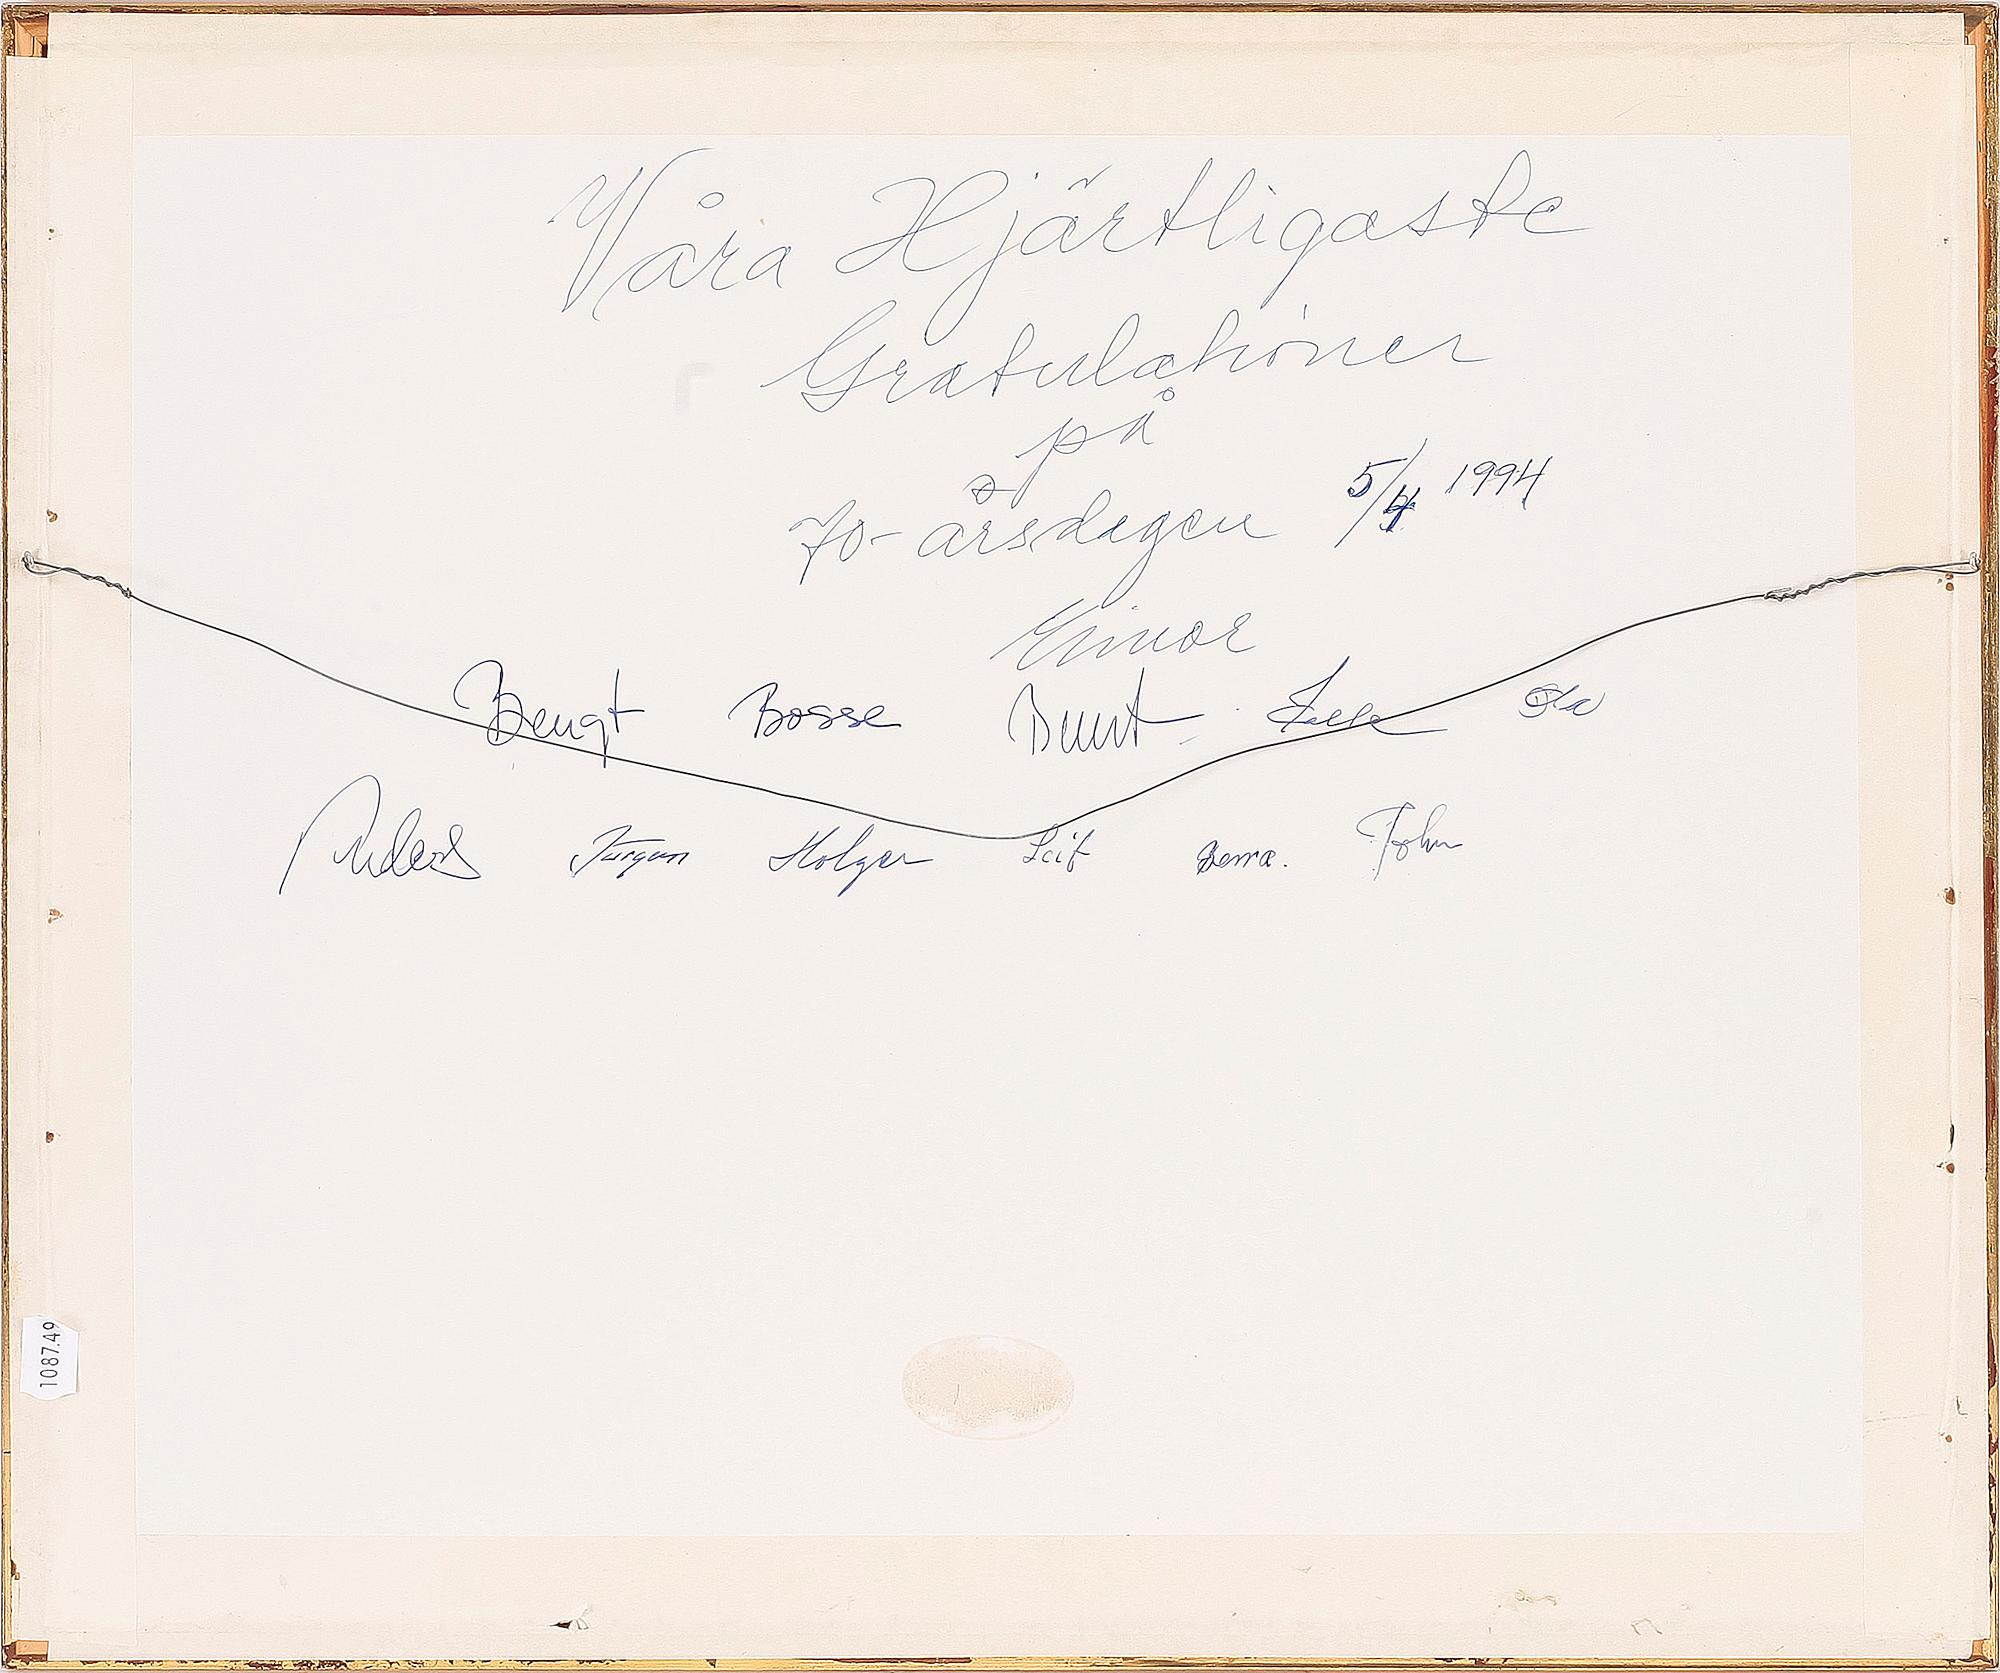 Våra Hjärtligaste
Gratulationer
på
70-årsdagen 5/4 1994
Bengt Bosse Ola
Anders Jörgen Holger Leif John
1087.49